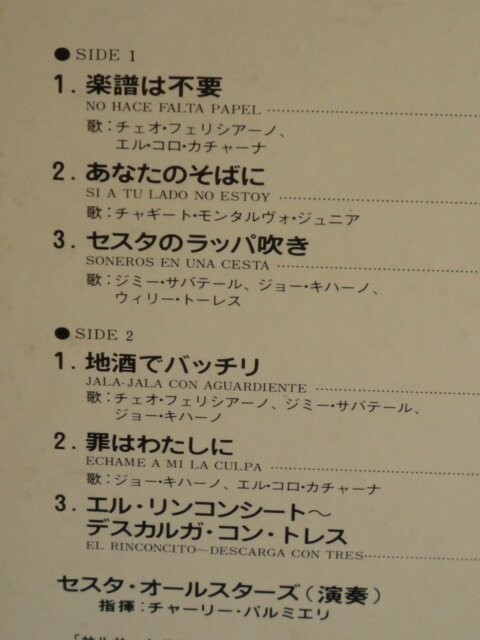 ● SIDE 1
1. 楽譜は不要
NO HACE FALTA PAPEL
歌：チェオ・フェリシアーノ、
エル・コロ・カチャーナ
2. あなたのそばに
SI A TU LADO NO ESTOY
歌：チャギート・モンタルヴォ・ジュニア
3. セスタのラッパ吹き
SONEROS EN UNA CESTA
歌：ジミー・サバテール、ジョー・キハーノ、
ウィリー・トーレス
● SIDE 2
1. 地酒でバッチリ
JALA-JALA CON AGUARDIENTE
歌：チェオ・フェリシアーノ、ジミー・サバテール、
ジョー・キハーノ
2. 罪はわたしに
ECHAME A MI LA CULPA
歌：ジョー・キハーノ、エル・コロ・カチャーナ
3. エル・リンコンシート～
デスカルガ・コン・トレス
EL RINCONCITO~DESCARGA CON TRES
セスタ・オールスターズ（演奏）
指揮：チャーリー・パルミエリ